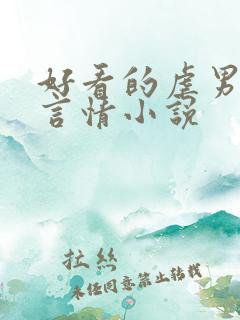 好看的虐男
言情小说
拉丝
未经同意禁止转载